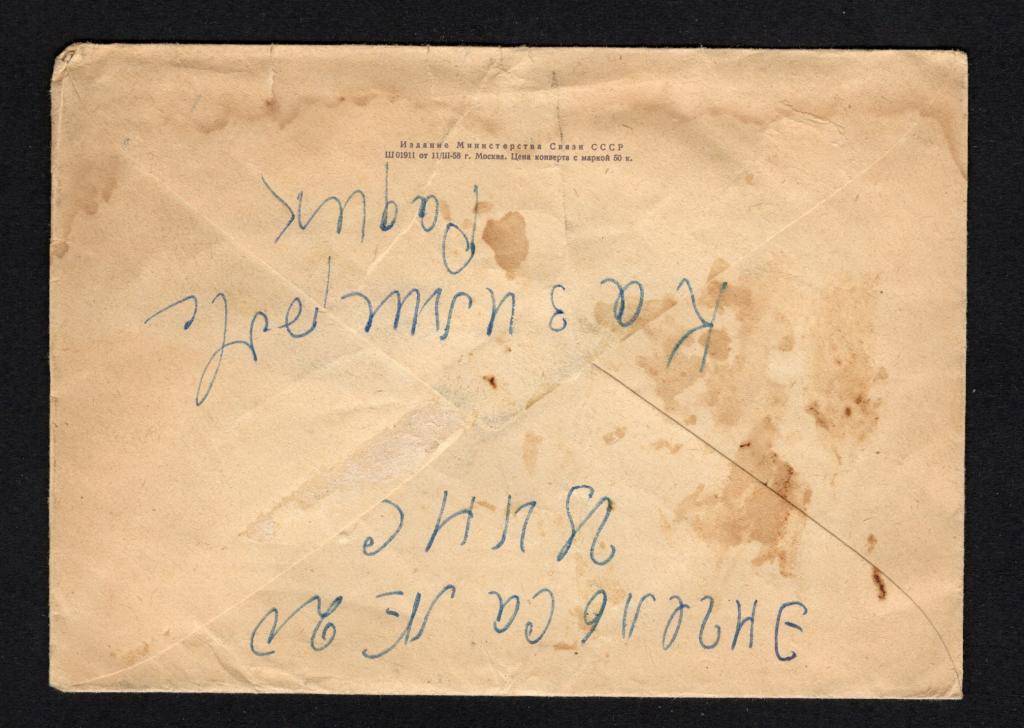 Издание Министерства Связи СССР
Ш 01911 от 11/III-58 г. Москва. Цена конверта с маркой 50 к.
Энгельса № 20
Казимир
Радик